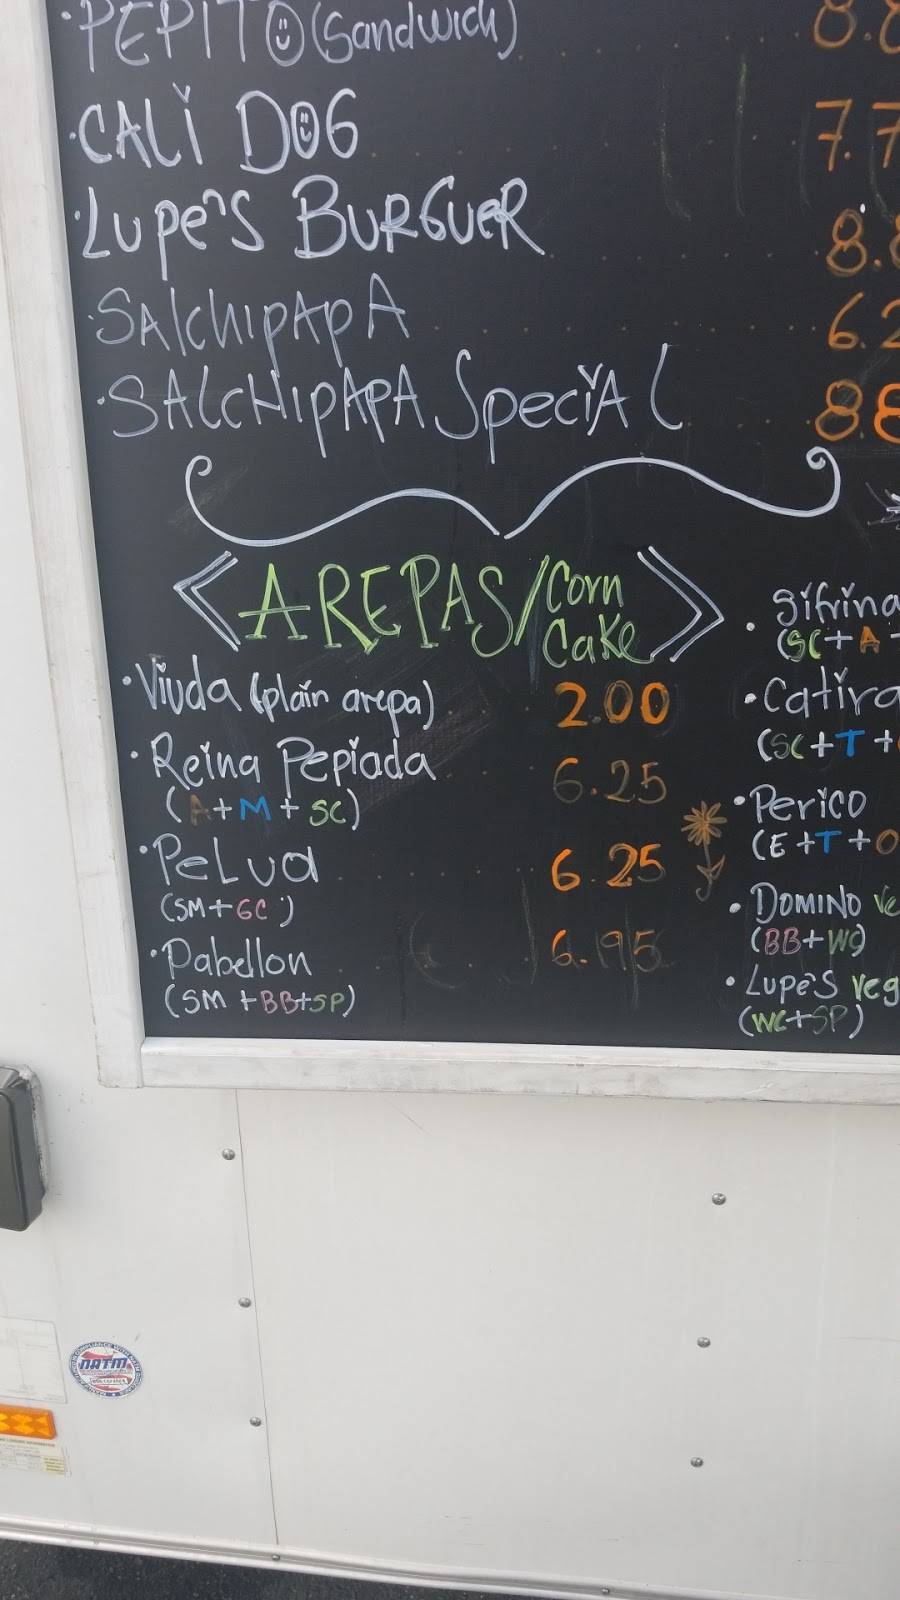 ·PEPITO (Sandwich) 8.8
·CALI DOG 7.7
·Lupe's BURGUER 8.8
·SAlchipApA 6.2
·SALCHIPAPA SpeciAL 8.8
AREPAS/Corn Cake
·Viuda (plain arepa) 2.00
·Reina Pepiada 6.25
(A+M+SC)
·PeLua 6.25
(SM+GC)
·Pabellon 6.95
(SM+BB+SP)
·Sifrina
(SC+A+
·Catira
(SC+T+
·Perico
(E+T+O
·DOMINO Ve
(BB+WC)
·Lupe's veg
(WC+SP)
NATM